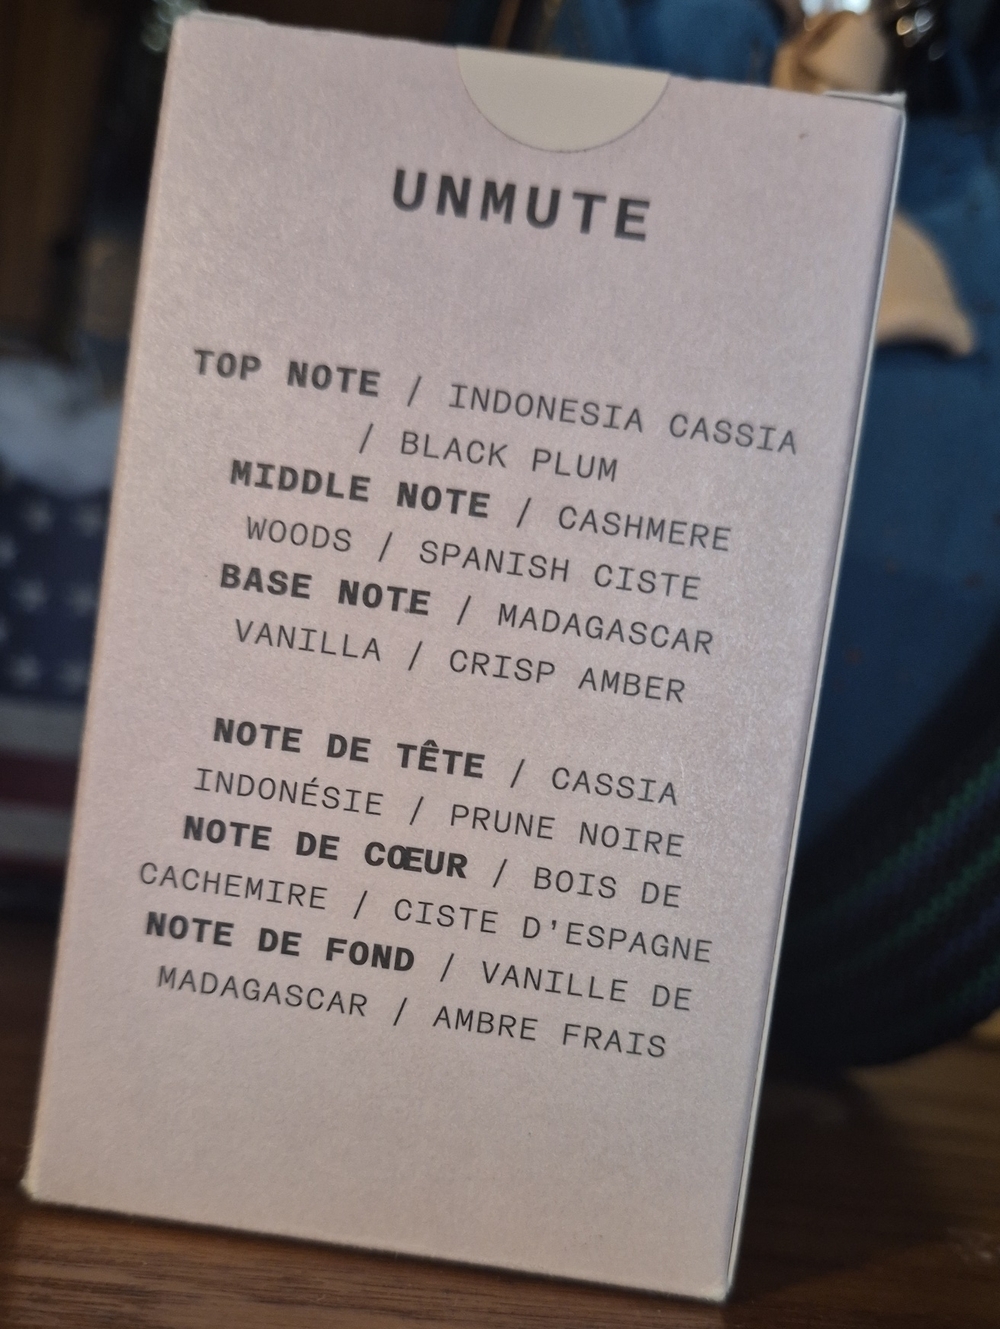 UNMUTE
TOP NOTE / INDONESIA CASSIA
/ BLACK PLUM
MIDDLE NOTE / CASHMERE
WOODS / SPANISH CISTE
BASE NOTE / MADAGASCAR
VANILLA / CRISP AMBER
NOTE DE TÊTE / CASSIA
INDONÉSIE / PRUNE NOIRE
NOTE DE CŒUR / BOIS DE
CACHEMIRE / CISTE D'ESPAGNE
NOTE DE FOND / VANILLE DE
MADAGASCAR / AMBRE FRAIS